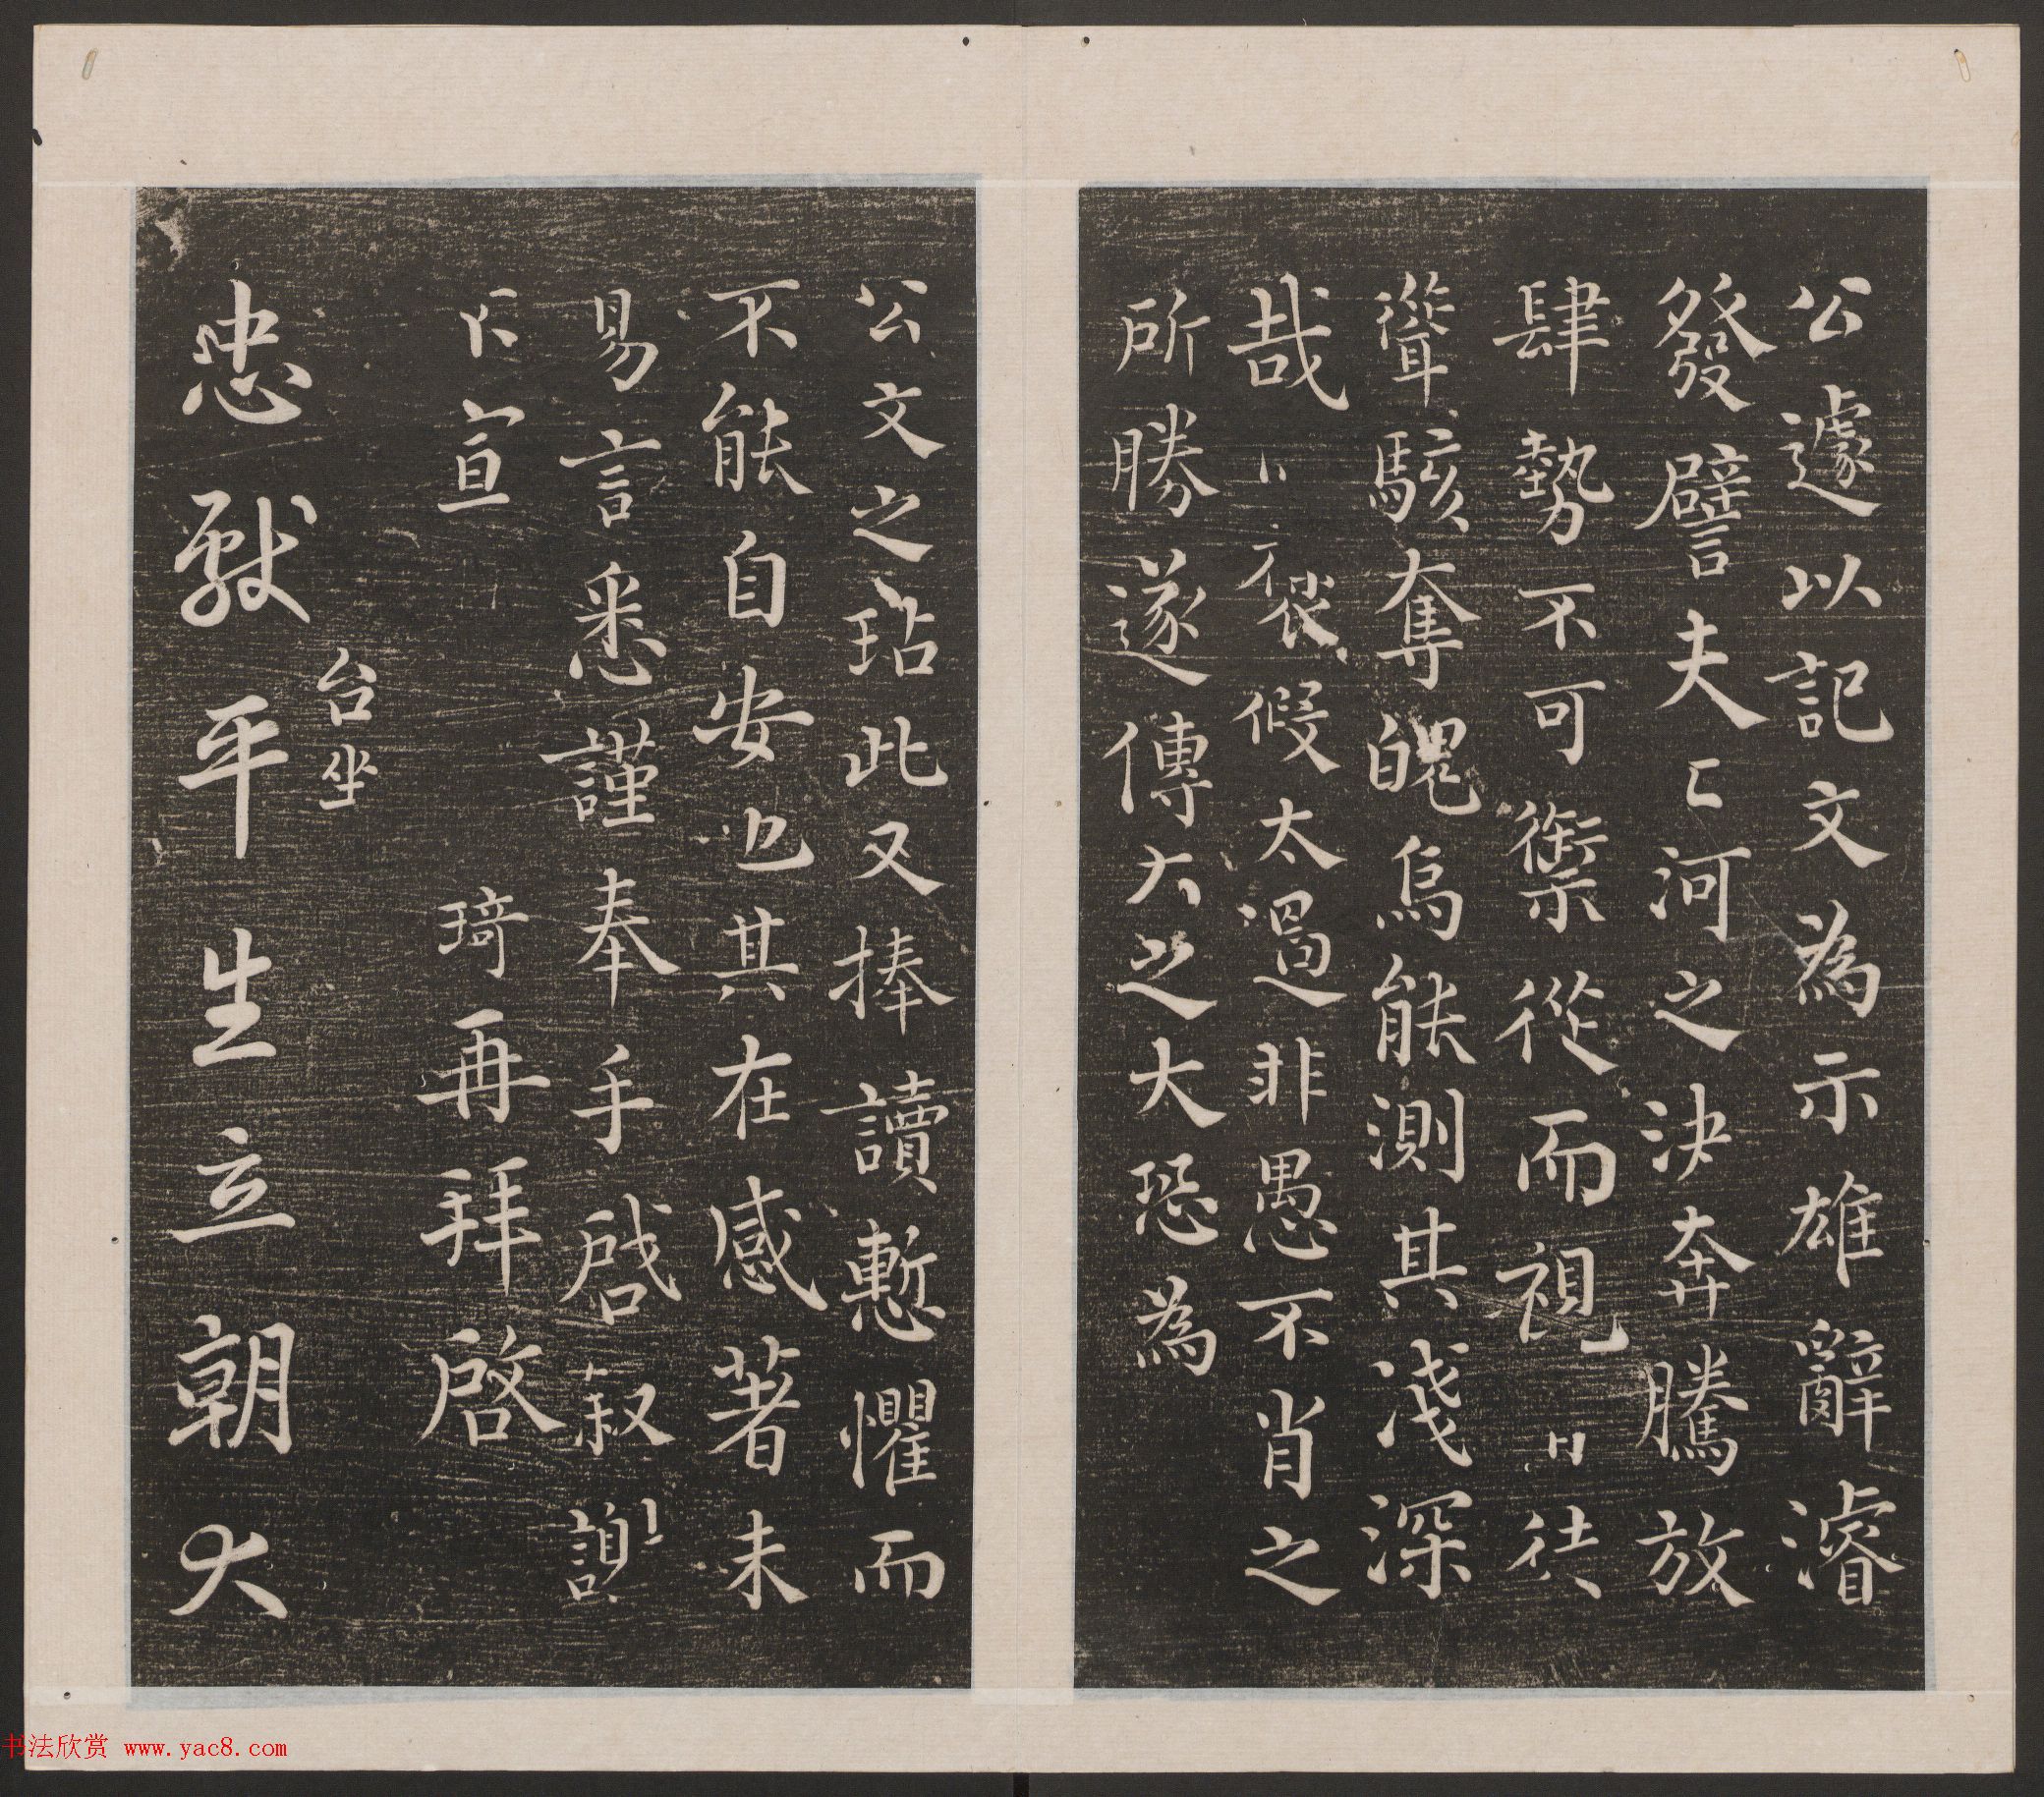 公遽以記文為示雄辭濬
發譬夫河之決奔騰放
肆勢不可禦從而視徒
聳駭奪魄烏能測其淺深
哉褒假太過非愚不肖之
所勝遂傳六之大恐為
公文之玷此又捧讀慙懼而
不能自安也其在感著未
易言悉謹奉手啓叙謝
不宣 琦再拜啓
台坐
忠獻平生立朝大
书法欣赏 www.yac8.com